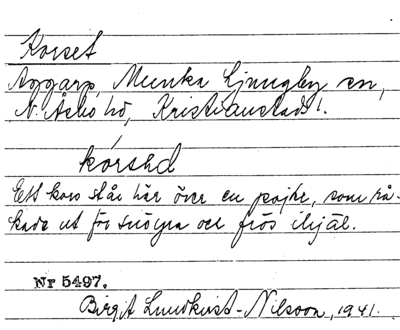 Korset
Aggarp, Munka Ljungby sn,
N. Åsbo hd, Kristianstads l.
kórsɘd
Ett kors står här över en pojke, som rå-
kade ut för snöyra och frös ihjäl.
Nr 5497.
Birgit Lundkvist-Nilsson, 1941.